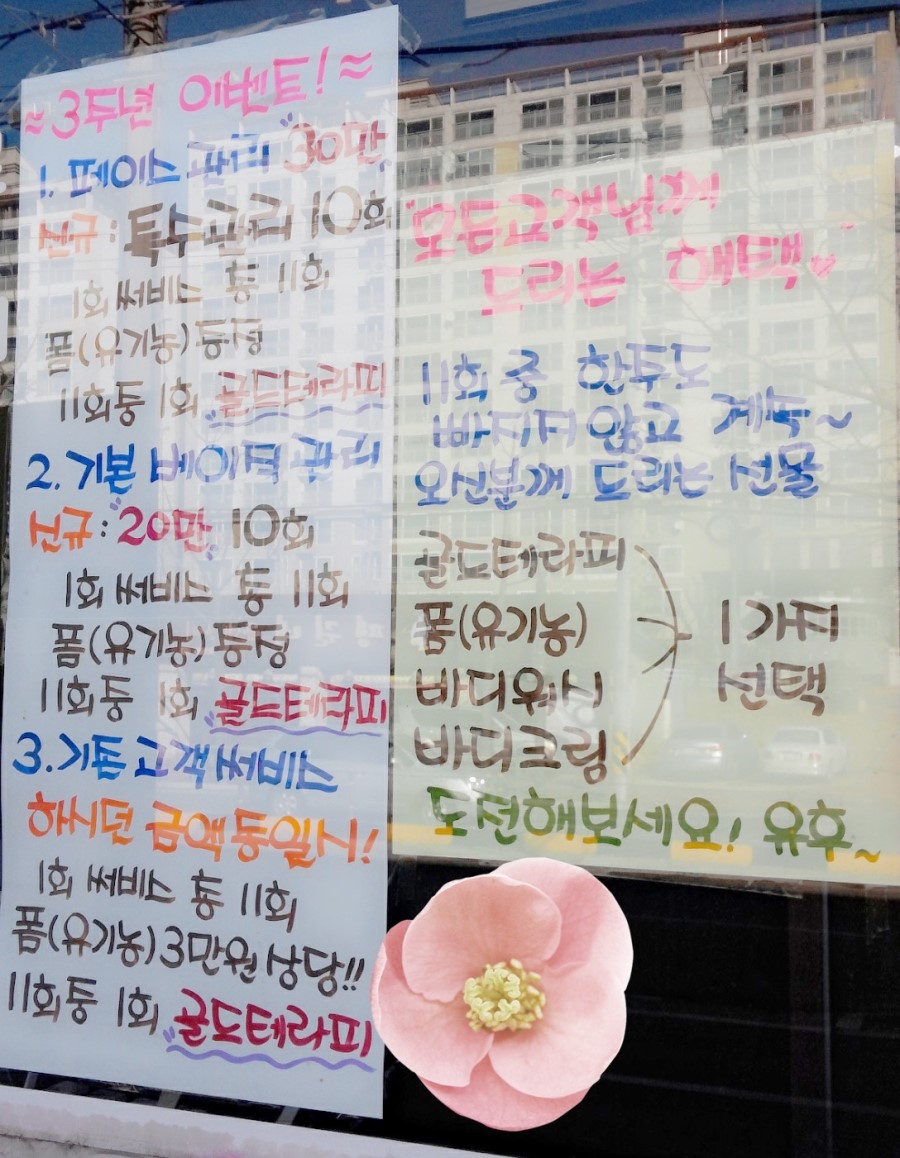 ≈3주년 이벤트!≈
1. 페이스 관리 "30만"
신규: 특수관리 10회
1회 써비스 총 11회
폼(유기농)증정
11회중 1회 "골드테라피
2. 기본 베이직 관리
신규: "20만" 10회
1회 써비스 총 11회
폼(유기농)증정
11회중 1회 "골드테라피
3. 기존고객써비스
하시던 금액동일시!
1회 써비스 총 11회
폼(유기농)3만원상당!!
11회중 1회 "골드테라피
"모든고객님께
드리는 혜택♥"
11회 중 한두도
빠지지 않고 계속~
오신분께 드리는 선물
골드테라피
폼(유기농)
바디워시
바디크림
1가지
선택
도전해보세요! 유후~